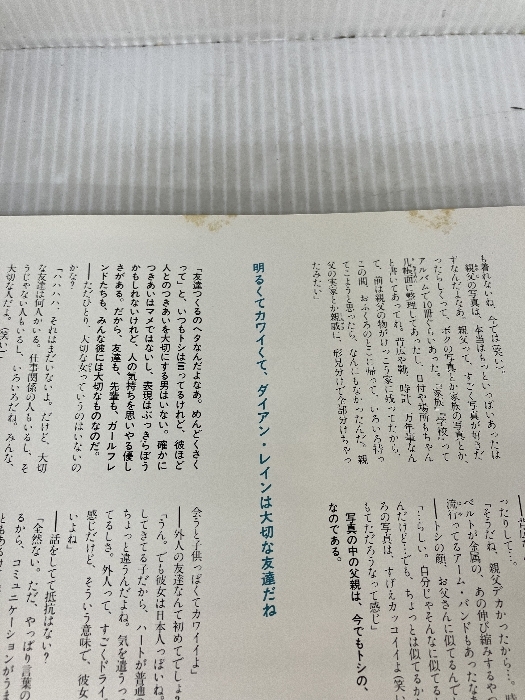 も着れないね、今では（笑い）。
親父の写真は、本当はもっといっぱいあったは
ずなんだよなあ。親父って、すごく写真が好きだ
ったらしくって、ボクの写真とか家族の写真とか、
アルバムで10冊ぐらいあった。ご家族、学校って
几帳面に整理してあったし、日付や場所もちゃん
と書いてあってね。背広や靴、時計、万年筆なん
て、前は親父の物がけっこう家に残ってたから、
この間、おふくろのとこに帰って、いろいろ持っ
てこようと思ったら、なんにもなかったんだ。親
父の実家とか親戚に、形見分けで全部分けちゃっ
たみたい」
ったりして…。
「そうだね、親父デカかったから…。
ベルトが金属の、あの伸び縮みするや
流行ってるアーム・バンドもあったなあ
――トシの顔、お父さんに似てるんで
「…らしい。自分じゃそんなに似てる
んだけど…でも、ちょっとは似てるか
ろの写真は、すげえカッコイイよ（笑い
もてただろうなって感じ」
写真の中の父親は、今でもトシの、
なのである。
明るくてカワイくて、ダイアン・レインは大切な友達だね
「友達つくるのヘタなんだよなあ。めんどくさく
って」と、いつもトシは言ってるけれど、彼ほど
人とのつきあいを大切にする男はいない。確かに
つきあいはマメではないし、表現はぶっきらぼう
かもしれないけれど、人の気持ちを思いやる優し
さがある。だから、友達も、先輩も、ガールフレ
ンドたちも、みんな彼には大切なものなのだ。
――ただひとり、大切な女っていうのはいないの
かな？
「ハハハ、それはまだいないよ。だけど、大切
な友達は何人かいる。仕事関係の人もいるし、そ
うじゃない人もいるし、いろいろだね。みんな、
大切な人だよ。（笑い）
会うと子供っぽくてカワイイよ」
――外人の友達なんて初めてでしょ
「うん。でも彼女は日本人っぽいね。
してきてる子だから、ハートが普通
ちょっと違うんだよね。気を遣うっ
てるしさ。外人って、すごくドライ
感じだけど、そういう意味で、彼女
いよね」
――話をしてて抵抗はない？
「全然ない。ただ、やっぱり言葉の
るから、コミュニケーションがうま